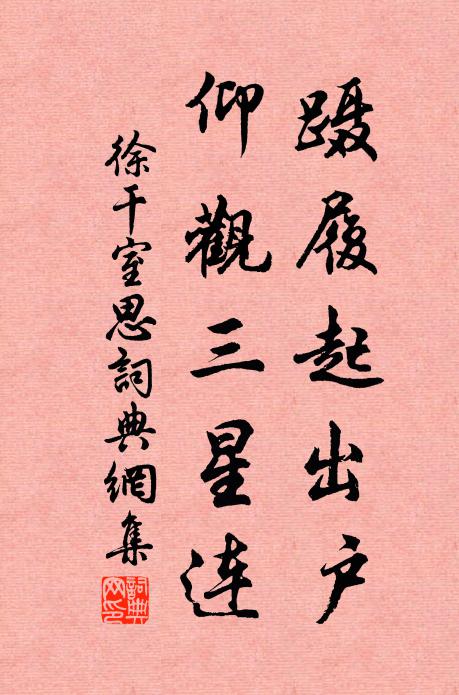 蹑履起出户
仰觀三星连
徐干室思詞典網集
詞典網印